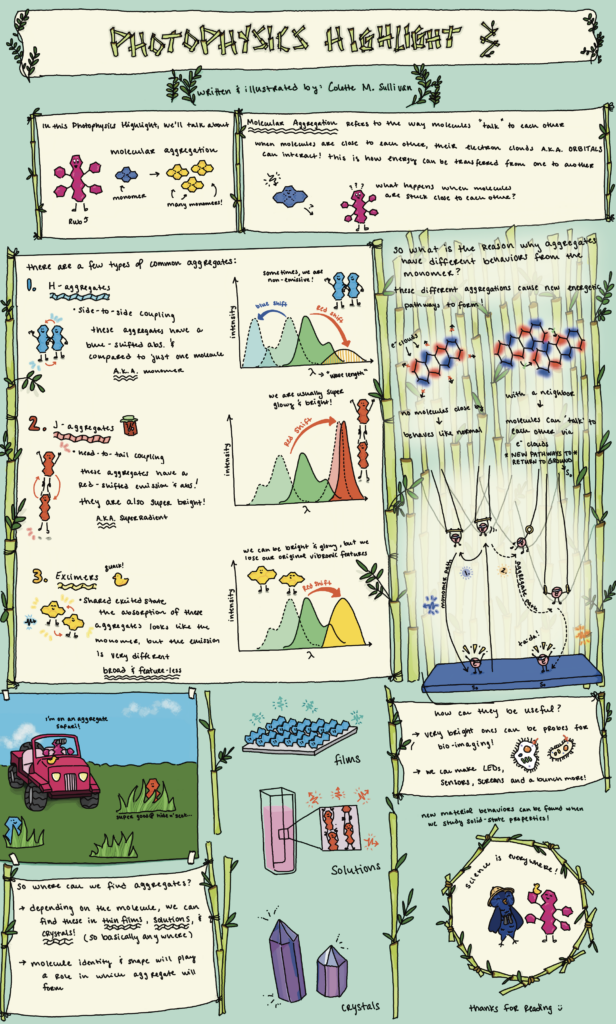 PHOTOPHYSICS HIGHLIGHT
written & illustrated by: Colette M. Sullivan
In this Photophysics Highlight, we'll talk about
molecular aggregation
Rub J
monomer
many monomers!
Molecular Aggregation refers to the way molecules "talk" to each other
when molecules are close to each other, their electron clouds A.K.A. ORBITALS
can interact! this is how energy can be transferred from one to another
???
what happens when molecules
are stuck close to each other?
there are a few types of common aggregates:
1. H-aggregates
• side-to-side coupling
these aggregates have a
blue-shifted abs. &
compared to just one molecule
A.K.A. monomer
sometimes, we are
non-emissive!
intensity
blue shift
Red shift
λ → "wavelength"
2. J-aggregates
• head-to-tail coupling
these aggregates have a
Red-shifted emission & abs.!
they are also super bright!
A.K.A. SuperRadiant
we are usually super
glowy & bright!
intensity
Red shift
λ
3. Excimers
• Shared excited state
the absorption of these
aggregates looks like the
monomer, but the emission
is very different
broad & feature-less
we can be bright & glowy, but we
lose our original vibronic features
intensity
Red shift
λ
So what is the reason why aggregates
have different behaviors from the
monomer?
these different aggregations cause new energetic
pathways to form!
e⁻ clouds
no molecules close by
behaves like normal
with a neighbor
molecules can 'talk' to
each other via
e⁻ clouds
* NEW PATHWAYS TO
RETURN TO GROUND
monomer path
aggregate path
ta-da!
S₀
S₀
I'm on an aggregate
safari!
super good @ hide n' seek...
films
Solutions
crystals
how can they be useful?
→ very bright ones can be probes for
bio-imaging!
→ we can make LEDs,
sensors, screens and a bunch more!
new material behaviors can be found when
we study solid-state properties!
Science is everywhere!
So where can we find aggregates?
→ depending on the molecule, we can
find these in thin films, solutions, &
crystals! (so basically anywhere)
→ molecule identity & shape will play
a role in which aggregate will
form
thanks for reading